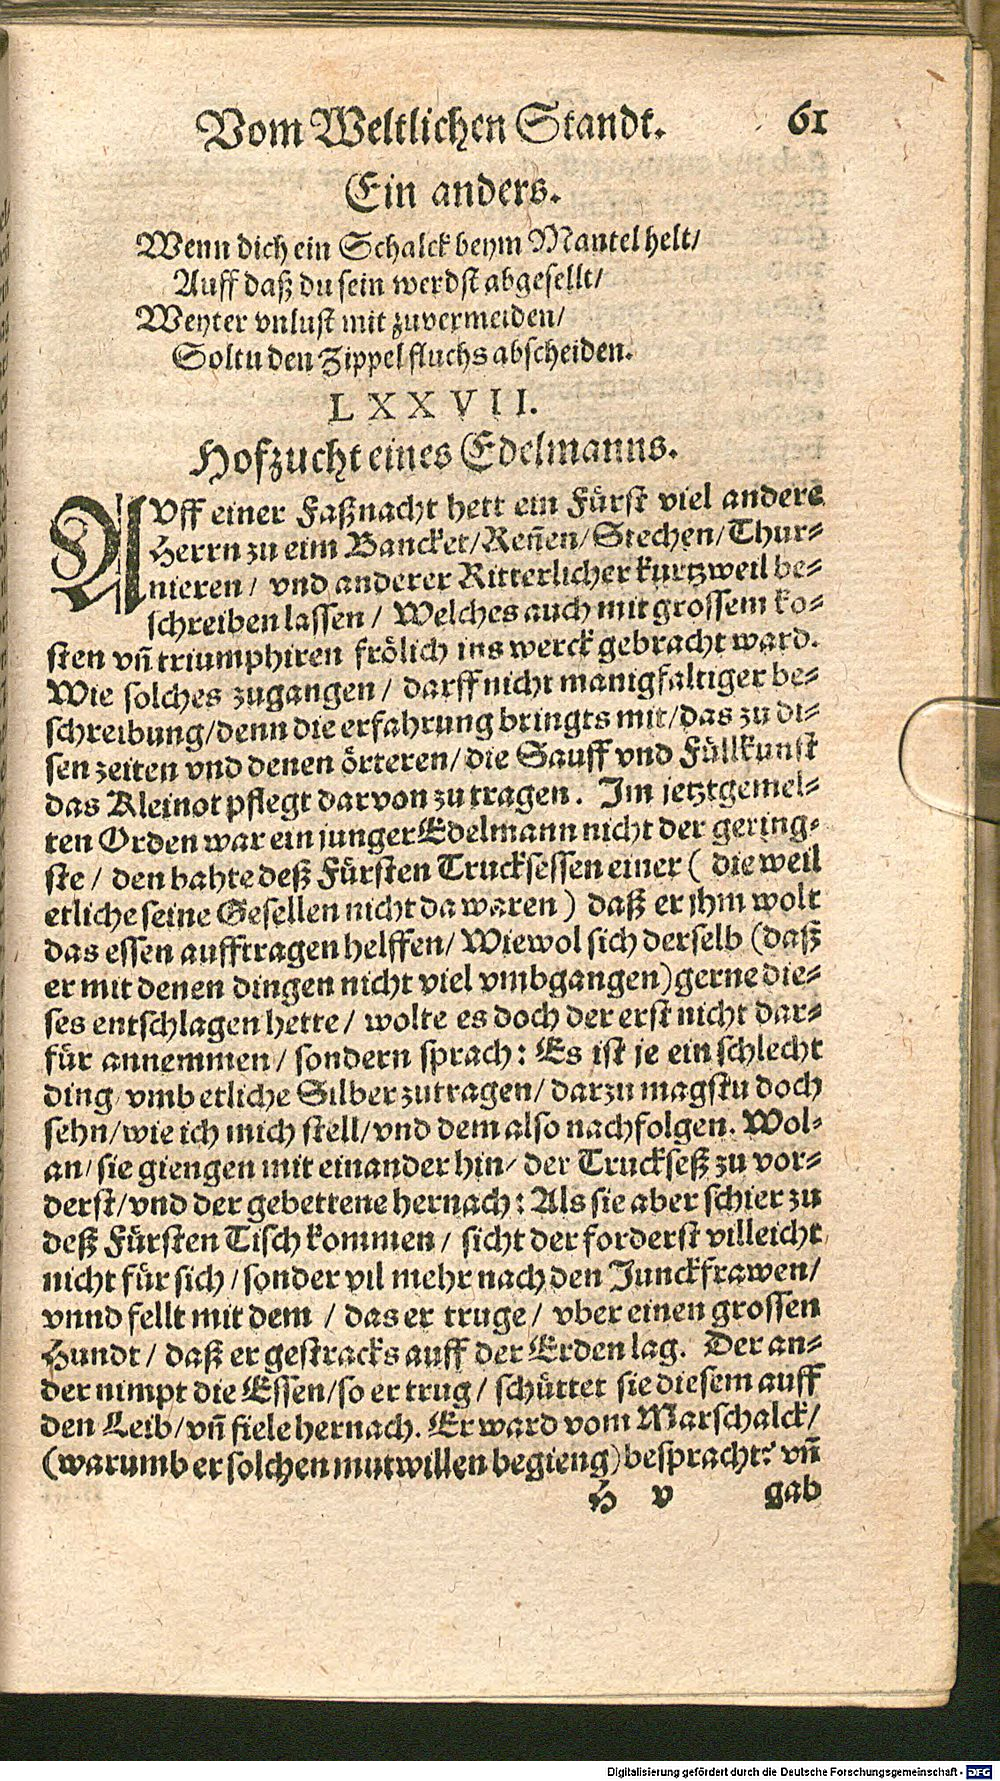 Vom Weltlichen Standt. 61
Ein anders.
Wenn dich ein Schalck beym Mantel helt/
Auff daß du sein werdst abgesellt/
Weyter vnlust mit zuvermeiden/
Soltu den Zippel fluchs abscheiden.
LXXVII.
Hofzucht eines Edelmanns.
AVff einer Faßnacht hett ein Fürst viel andere
Herrn zu eim Bancket/Reñen/Stechen/Thur-
nieren/ vnd anderer Ritterlicher kurtzweil be-
schreiben lassen/ Welches auch mit grossem ko-
sten vñ triumphiren frölich ins werck gebracht ward.
Wie solches zugangen/ darff nicht manigfaltiger be-
schreibung/denn die erfahrung bringts mit/das zu di-
sen zeiten vnd denen örteren/die Sauff vnd Füllkunst
das Kleinot pflegt darvon zu tragen. Im jetztgemel-
ten Orden war ein junger Edelmann nicht der gering-
ste/ den bahte deß Fürsten Trucksessen einer ( die weil
etliche seine Gesellen nicht da waren ) daß er jhm wolt
das essen aufftragen helffen/ Wiewol sich derselb (daß
er mit denen dingen nicht viel vmbgangen) gerne die-
ses entschlagen hette/ wolte es doch der erst nicht dar-
für annemmen/ sondern sprach: Es ist je ein schlecht
ding vmb etliche Silber zutragen/ darzu magstu doch
sehn/wie ich mich stell/vnd dem also nachfolgen. Wol-
an/ sie giengen mit einander hin/ der Truckseß zu vor-
derst/vnd der gebettene hernach: Als sie aber schier zu
deß Fürsten Tisch kommen/ sicht der forderst villeicht
nicht für sich/sonder vil mehr nach den Junckfrawen/
vnnd fellt mit dem / das er truge/ vber einen grossen
Hundt/ daß er gestracks auff der Erden lag. Der an-
der nimpt die Essen/so er trug/ schüttet sie diesem auff
den Leib/vñ fiele hernach. Er ward vom Marschalck/
(warumb er solchen mutwillen begieng) bespracht: vñ
H v gab
Digitalisierung gefördert durch die Deutsche Forschungsgemeinschaft - DFG